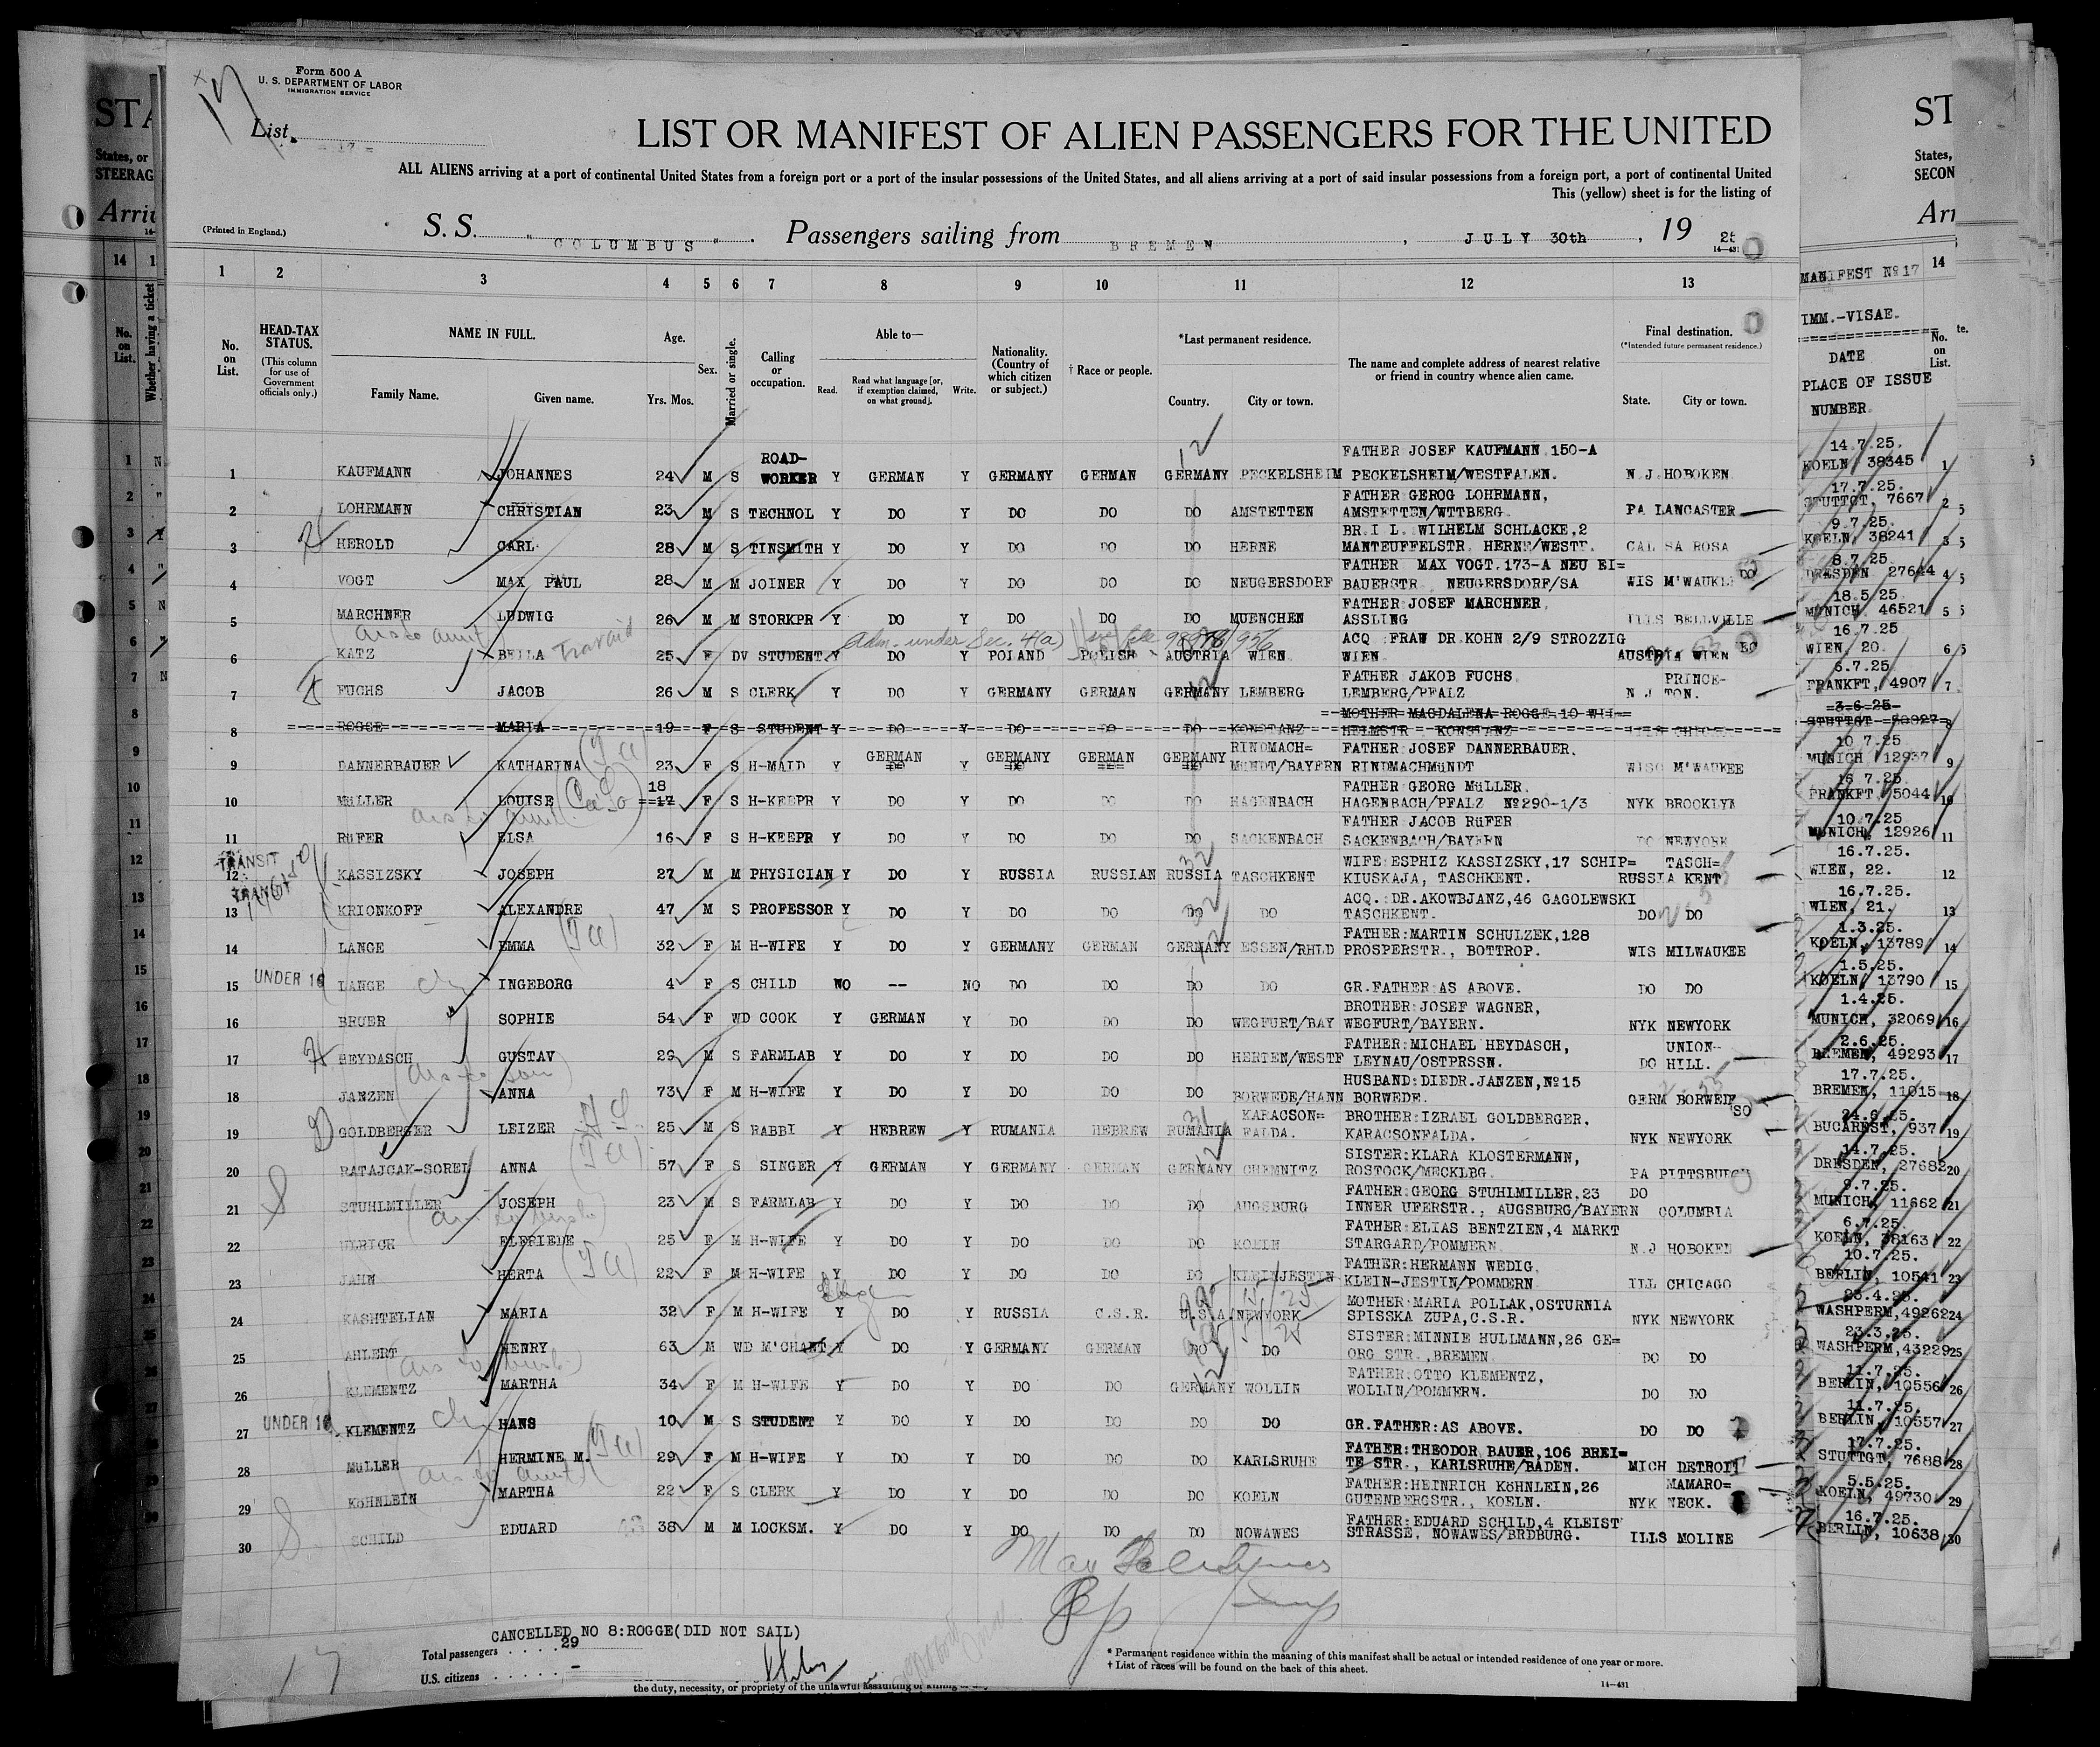 Form 500 A
U. S. DEPARTMENT OF LABOR
IMMIGRATION SERVICE
List
17
LIST OR MANIFEST OF ALIEN PASSENGERS FOR THE UNITED
ALL ALIENS arriving at a port of continental United States from a foreign port or a port of the insular possessions of the United States, and all aliens arriving at a port of said insular possessions from a foreign port, a port of continental United
This (yellow) sheet is for the listing of
(Printed in England.)
S. S. "COLUMBUS". Passengers sailing from BREMEN, JULY 30th, 19 25
14—431
1 2 3 4 5 6 7 8 9 10 11 12 13
No. on List.
HEAD-TAX STATUS.
(This column for use of Government officials only.)
NAME IN FULL.
Family Name. Given name.
Age.
Yrs. Mos.
Sex.
Married or single.
Calling or occupation.
Able to—
Read. Read what language [or, if exemption claimed, on what ground]. Write.
Nationality. (Country of which citizen or subject.)
† Race or people.
*Last permanent residence.
Country. City or town.
The name and complete address of nearest relative or friend in country whence alien came.
Final destination.
(*Intended future permanent residence.)
State. City or town.
MANIFEST Nº 17
IMM.-VISAE.
DATE
PLACE OF ISSUE
NUMBER.
1 KAUFMANN JOHANNES 24 M S ROAD-WORKER Y GERMAN Y GERMANY GERMAN GERMANY PECKELSHEIM FATHER JOSEF KAUFMANN 150-A PECKELSHEIM/WESTFALEN. N.J. HOBOKEN 14.7.25. KOELN 38345 1
2 LOHRMANN CHRISTIAN 23 M S TECHNOL Y DO Y DO DO DO AMSTETTEN FATHER GEROG LOHRMANN, AMSTETTEN/WTTBERG. PA LANCASTER 17.7.25. STUTTGT, 7667 2
3 HEROLD CARL 28 M S TINSMITH Y DO Y DO DO DO HERNE BR.I L. WILHELM SCHLACKE,2 MANTEUFFELSTR. HERNE/WESTF. CAL SA ROSA 9.7.25. KOELN, 38241 3
4 VOGT MAX PAUL 28 M M JOINER Y DO Y DO DO DO NEUGERSDORF FATHER MAX VOGT.173-A NEU EI= BAUERSTR. NEUGERSDORF/SA WIS M'WAUKEE 8.7.25. DRESDEN 27644 4
5 MARCHNER LUDWIG 26 M M STORKPR Y DO Y DO DO DO MUENCHEN FATHER JOSEF MARCHNER. ASSLING ILLS BELLVILLE 18.5.25 MUNICH. 46521 5
Adm. under Sec. 4(a)
6 KATZ BELLA 25 F DV STUDENT Y DO Y POLAND POLISH AUSTRIA WIEN ACQ FRAW DR.KOHN 2/9 STROZZIG WIEN AUSTRIA WIEN 16.7.25 WIEN, 20. 6
7 FUCHS JACOB 26 M S CLERK Y DO Y GERMANY GERMAN GERMANY LEMBERG FATHER JAKOB FUCHS LEMBERG/PFALZ N J PRINCE-TON. 6.7.25. FRANKFT, 4907 7
8 ROGGE MARIA 19 F S STUDENT Y DO Y DO DO DO KONSTANZ MOTHER MAGDALENA ROGGE 10 WIL= HELMSTR. KONSTANZ 3.6.25 STUTTGT 8
9 DANNERBAUER KATHARINA 23 F S H-MAID Y GERMAN Y GERMANY GERMAN GERMANY RINDMACH= MüNDT/BAYERN FATHER JOSEF DANNERBAUER. RINDMACHMüNDT WISC M'WAUKEE 10 7.25. MUNICH 12937 9
10 MüLLER LOUISE 18 F S H-KEEPR Y DO Y DO DO DO HAGENBACH FATHER GEORG MüLLER. HAGENBACH/PFALZ Nº290-1/3 NYK BROOKLYN 16 7.25. FRANKFT, 5044 10
11 RüFER ELSA 16 F S H-KEEPR Y DO Y DO DO DO SACKENBACH FATHER JACOB RüFER SACKENBACH/BAYERN DO NEWYORK 10.7.25 MUNICH, 12926 11
TRANSIT
12 KASSIZSKY JOSEPH 27 M M PHYSICIAN Y DO Y RUSSIA RUSSIAN RUSSIA TASCHKENT WIFE:ESPHIZ KASSIZSKY,17 SCHIP= KIUSKAJA, TASCHKENT. RUSSIA TASCH= KENT 16.7.25. WIEN, 22. 12
TRANSIT
13 KRIONKOFF ALEXANDRE 47 M S PROFESSOR Y DO Y DO DO DO DO ACQ.:DR.AKOWBJANZ,46 GAGOLEWSKI TASCHKENT. DO DO 16.7.25. WIEN, 21. 13
14 LANGE EMMA 32 F M H-WIFE Y DO Y GERMANY GERMAN GERMANY ESSEN/RHLD FATHER:MARTIN SCHULZEK,128 PROSPERSTR., BOTTROP. WIS MILWAUKEE 1.3.25. KOELN, 13789 14
15 UNDER 16 LANGE INGEBORG 4 F S CHILD NO -- NO DO DO DO DO GR.FATHER:AS ABOVE. DO DO 1.5.25. KOELN, 13790 15
16 BRUER SOPHIE 54 F WD COOK Y GERMAN Y DO DO DO WEGFURT/BAY BROTHER:JOSEF WAGNER, WEGFURT/BAYERN. NYK NEWYORK 1.4.25. MUNICH, 32069 16
17 HEYDASCH GUSTAV 29 M S FARMLAB Y DO Y DO DO DO HERTEN/WESTF FATHER:MICHAEL HEYDASCH, LEYNAU/OSTPRSSN. DO UNION-HILL. 2.6.25. BREMEN, 49293 17
18 JANZEN ANNA 73 F M H-WIFE Y DO Y DO DO DO BORWEDE/HANN HUSBAND:DIEDR.JANZEN,Nº15 BORWEDE. GERM BORWEDE 17.7.25. BREMEN, 11015 18
19 GOLDBERGER LEIZER 25 M S RABBI Y HEBREW Y RUMANIA HEBREW RUMANIA KARACSON= FALDA. BROTHER:IZRAEL GOLDBERGER. KARACSONFALDA. NYK NEWYORK 24.6.25. BUCAREST, 937 19
20 RATAJCAK-SOREL ANNA 57 F S SINGER Y GERMAN Y GERMANY GERMAN GERMANY CHEMNITZ SISTER:KLARA KLOSTERMANN, ROSTOCK/MECKLBG. PA PITTSBURGH 14.7.25. DRESDEN, 27682 20
21 STUHLMILLER JOSEPH 23 M S FARMLAB Y DO Y DO DO DO AUGSBURG FATHER:GEORG STUHLMILLER,23 INNER UFERSTR., AUGSBURG/BAYERN DO COLUMBIA 9.7.25. MUNICH, 11662 21
22 ULRICH ELFRIEDE 25 F M H-WIFE Y DO Y DO DO DO KOELN FATHER:ELIAS BENTZIEN,4 MARKT STARGARD/POMMERN. N.J HOBOKEN 6.7.25. KOELN, 38163 22
23 JAHN HERTA 22 F M H-WIFE Y DO Y DO DO DO KLEINJESTIN FATHER:HERMANN WEDIG, KLEIN-JESTIN/POMMERN ILL CHICAGO 10.7.25. BERLIN, 10541 23
24 KASHTELIAN MARIA 32 F M H-WIFE Y DO Y RUSSIA C.S.R. U.S.A. NEWYORK MOTHER:MARIA POLLAK,OSTURNIA SPISSKA ZUPA,C.S.R. NYK NEWYORK 23.4.25. WASHPERM,49262 24
25 AHLERT HENRY 63 M WD M'CHANT Y DO Y GERMANY GERMAN DO DO SISTER:MINNIE HULLMANN,26 GE= ORG STR.,BREMEN. DO DO 23.3.25. WASHPERM,43229 25
26 KLEMENTZ MARTHA 34 F M H-WIFE Y DO Y DO DO GERMANY WOLLIN FATHER:OTTO KLEMENTZ, WOLLIN/POMMERN. DO DO 11.7.25. BERLIN, 10556 26
27 UNDER 16 KLEMENTZ HANS 10 M S STUDENT Y DO Y DO DO DO DO GR.FATHER:AS ABOVE. DO DO 11.7.25. BERLIN, 10557 27
28 MüLLER HERMINE M. 29 F M H-WIFE Y DO Y DO DO DO KARLSRUHE FATHER:THEODOR BAUER,106 BREI= TE STR., KARLSRUHE/BADEN. MICH DETROIT 17.7.25. STUTTGT, 7688 28
29 KöHNLEIN MARTHA 22 F S CLERK Y DO Y DO DO DO KOELN FATHER:HEINRICH KöHNLEIN,26 GUTENBERGSTR., KOELN. NYK MAMARO= NECK. 5.5.25. KOELN, 49730 29
30 SCHILD EDUARD 38 M M LOCKSM. Y DO Y DO DO DO NOWAWES FATHER:EDUARD SCHILD,4 KLEIST STRASSE, NOWAWES/BRDBURG. ILLS MOLINE 16.7.25. BERLIN, 10638 30
CANCELLED NO 8:ROGGE(DID NOT SAIL)
Total passengers . . . . 29
U.S. citizens . . . . . –
17
* Permanent residence within the meaning of this manifest shall be actual or intended residence of one year or more.
† List of races will be found on the back of this sheet.
14—431
the duty, necessity, or propriety of the unlawful assaulting or killing